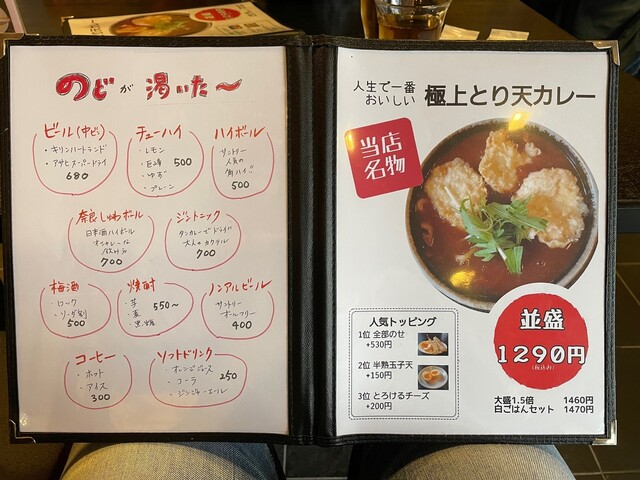 のどが渇いた〜
ビール(中ビン)
・キリンハートランド
・アサヒスーパードライ
680
チューハイ
・レモン
・巨峰
・ゆず
・プレーン
500
ハイボール
サントリー
人気の
角ハイボール
500
奈良しゅわボール
日本酒ハイボール
700
ジントニック
タンカレーでドライ
大人のカクテル
700
梅酒
・ロック
・ソーダ割
500
焼酎
・芋
・麦
・黒糖
550〜
ノンアルビール
サントリー
オールフリー
400
コーヒー
・ホット
・アイス
300
ソフトドリンク
・オレンジジュース
・コーラ
・ジンジャーエール
250
人生で一番
おいしい
極上とり天カレー
当店
名物
並盛
1290円
(税込み)
人気トッピング
1位 全部のせ
+530円
2位 半熟玉子天
+150円
3位 とろけるチーズ
+200円
大盛1.5倍 1460円
白ごはんセット 1470円